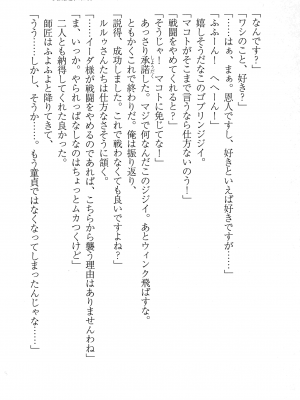 「なんです?」
「ワシのこと、好き?」
「……はぁ、まぁ。恩人ですし、好きといえば好きですが……」
「ふふーん! へへーん!」
嬉しそうだなこのゴブリンジジイ。
「マコトがそこまで言うなら仕方ないのう!」
「戦闘をやめてくれると?」
「そうじゃ! マコトに免じてな!」
あっさり承諾した。マジで何なんだこのジジイ。あとウィンク飛ばすな。
ともかくこれで終わりだ。俺は振り返り、
「説得、成功しました。これで戦わなくても良いですよね?」
ルルゥさんたちは仕方なさそうに頷く。
「……イーダ様が戦闘をやめるのであれば、こちらから襲う理由はありませんわね」
「ま、いっか。やられっぱなしなのはちょっとムカつくけど」
二人とも納得してくれた良かった。
師匠はふよふよと降りてきて、
「うう……しかし、そうか……。もう童貞ではなくなってしまったんじゃな……」